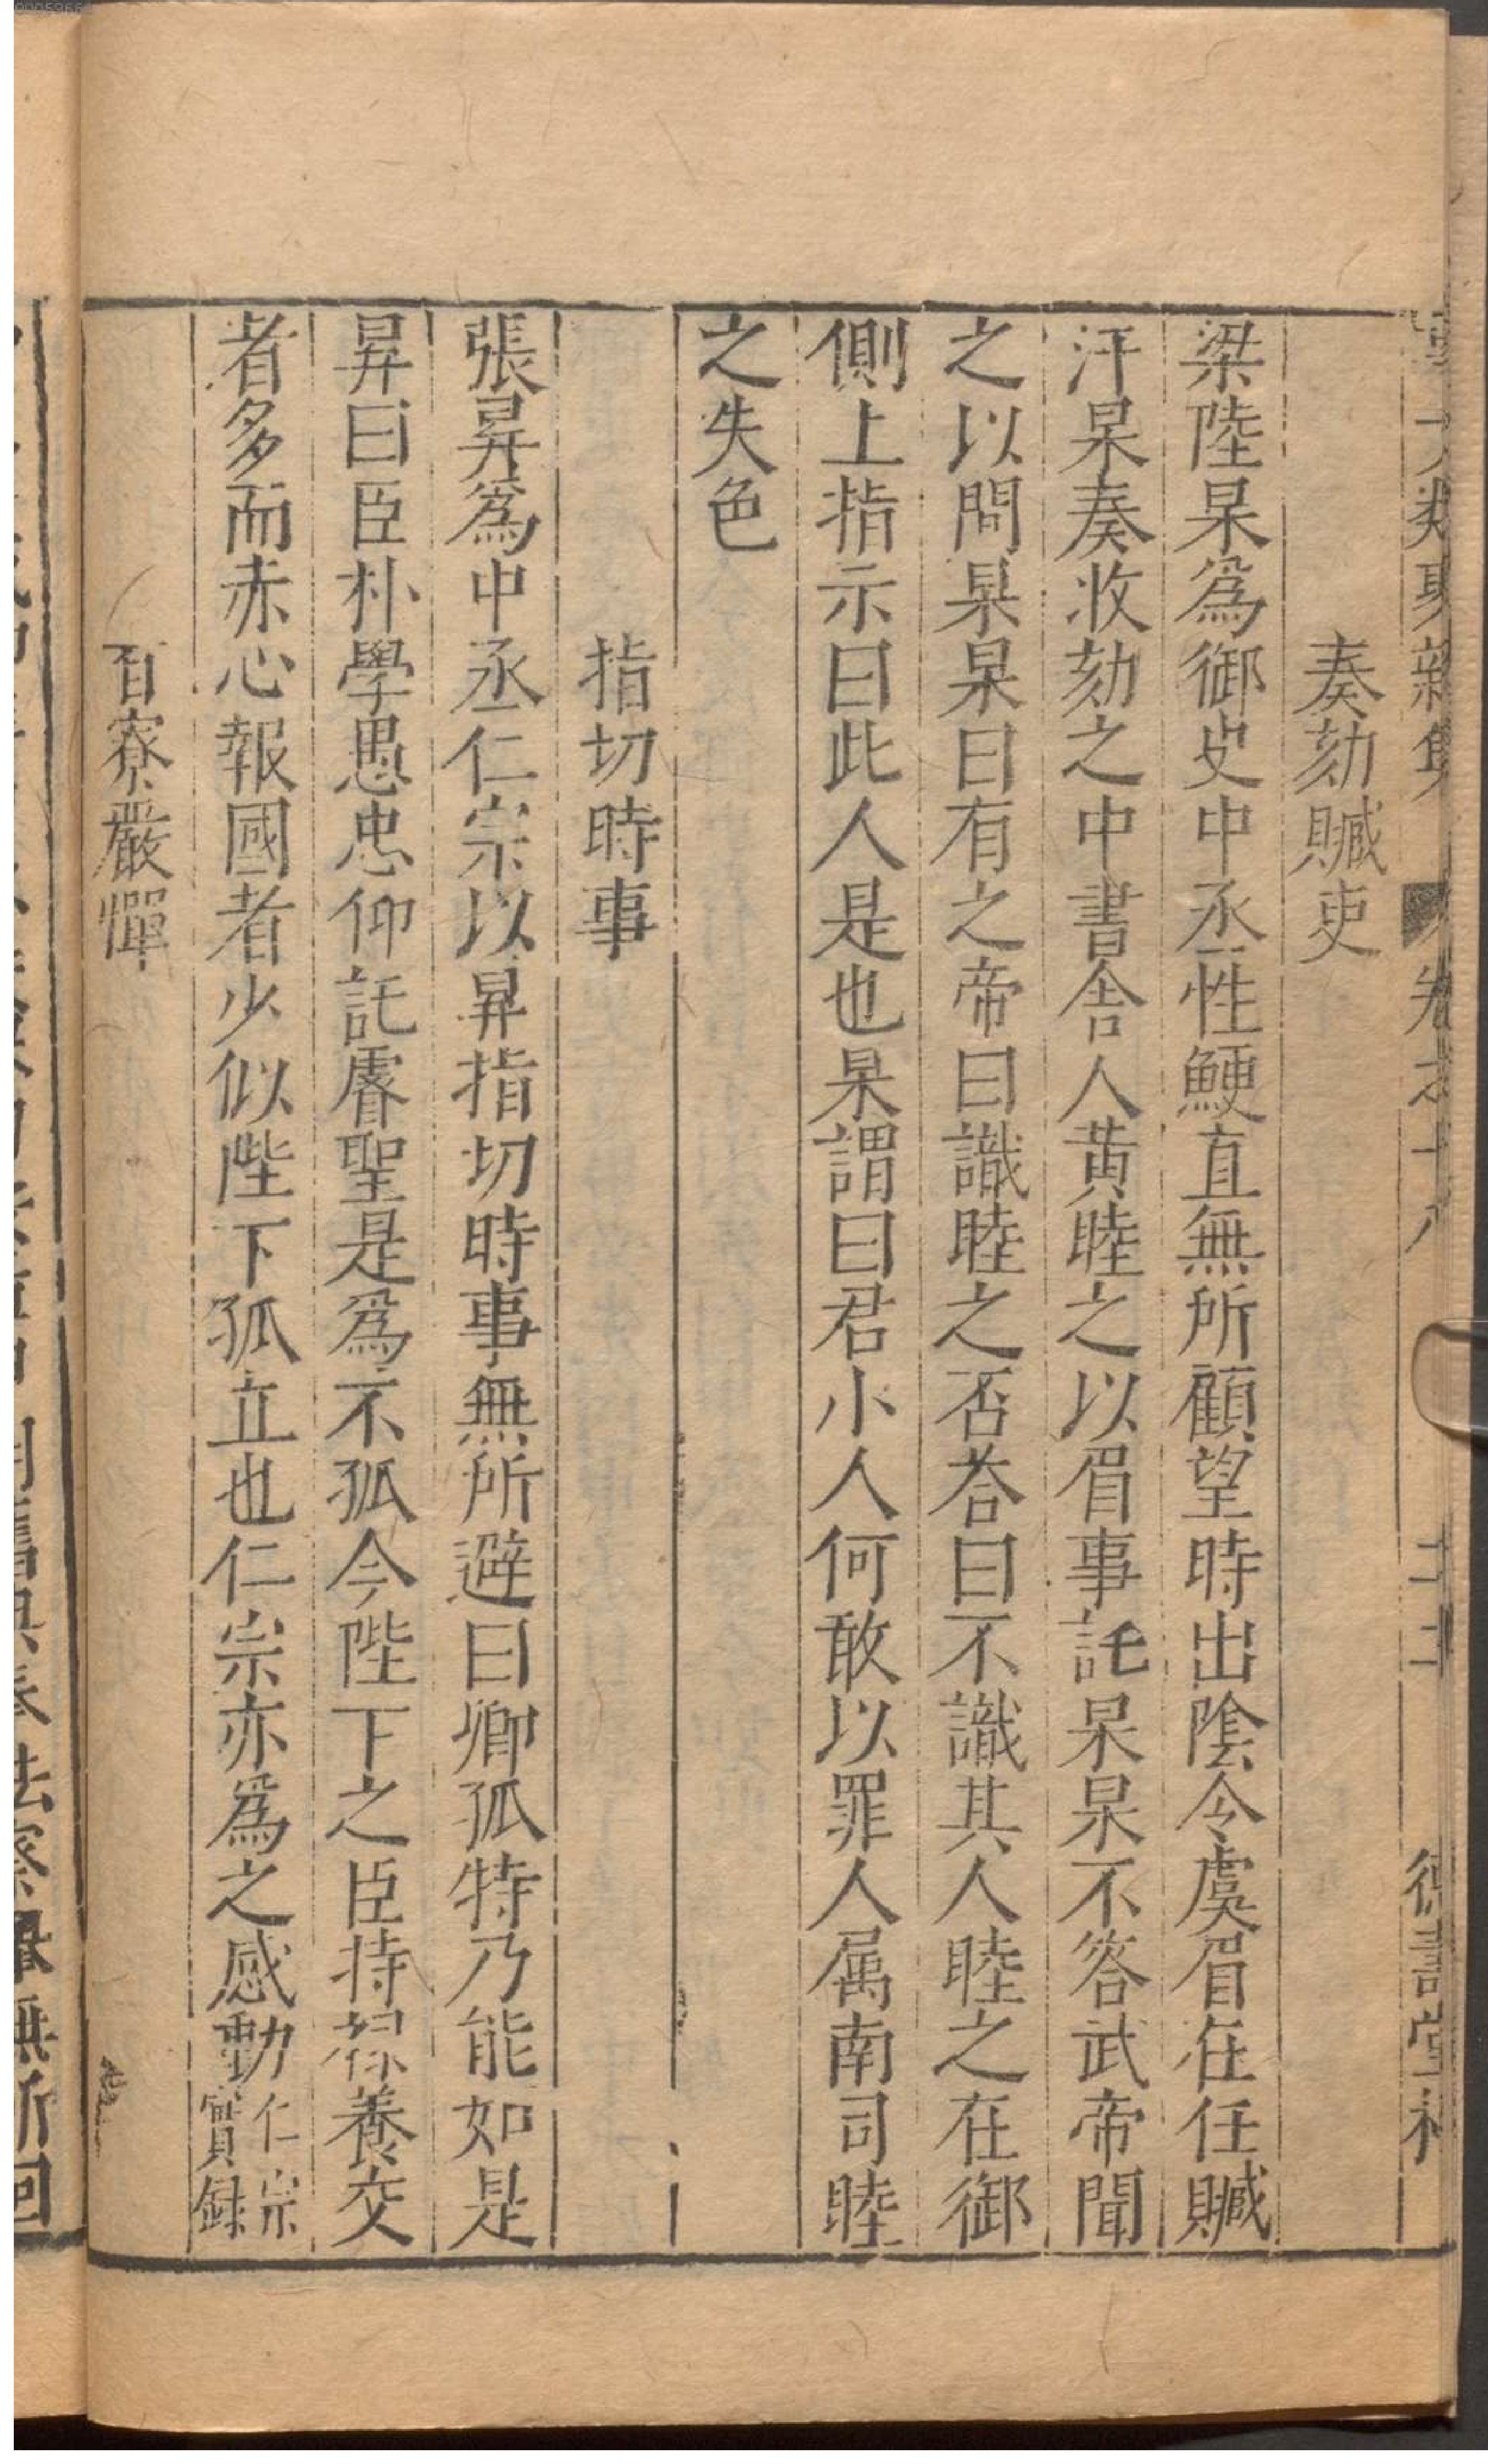 奏劾贓吏
梁陸杲爲御史中丞性鯁直無所顧望時出陰令虞眉在任贓
汗杲奏收劾之中書舍人黃睦之以眉事託杲杲不答武帝聞
之以問杲杲曰有之帝曰識睦之否荅曰不識其人睦之在御
側上指示曰此人是也杲謂曰君小人何敢以罪人属南司睦
之失色
指切時事
張昇爲中丞仁宗以昇指切時事無所避曰卿孤特乃能如是
昇曰臣朴學愚忠仰託睿聖是爲不孤今陛下之臣持祿養交
者多而赤心報國者少似陛下孤立也仁宗亦爲之感動仁宗實録
百寮嚴憚